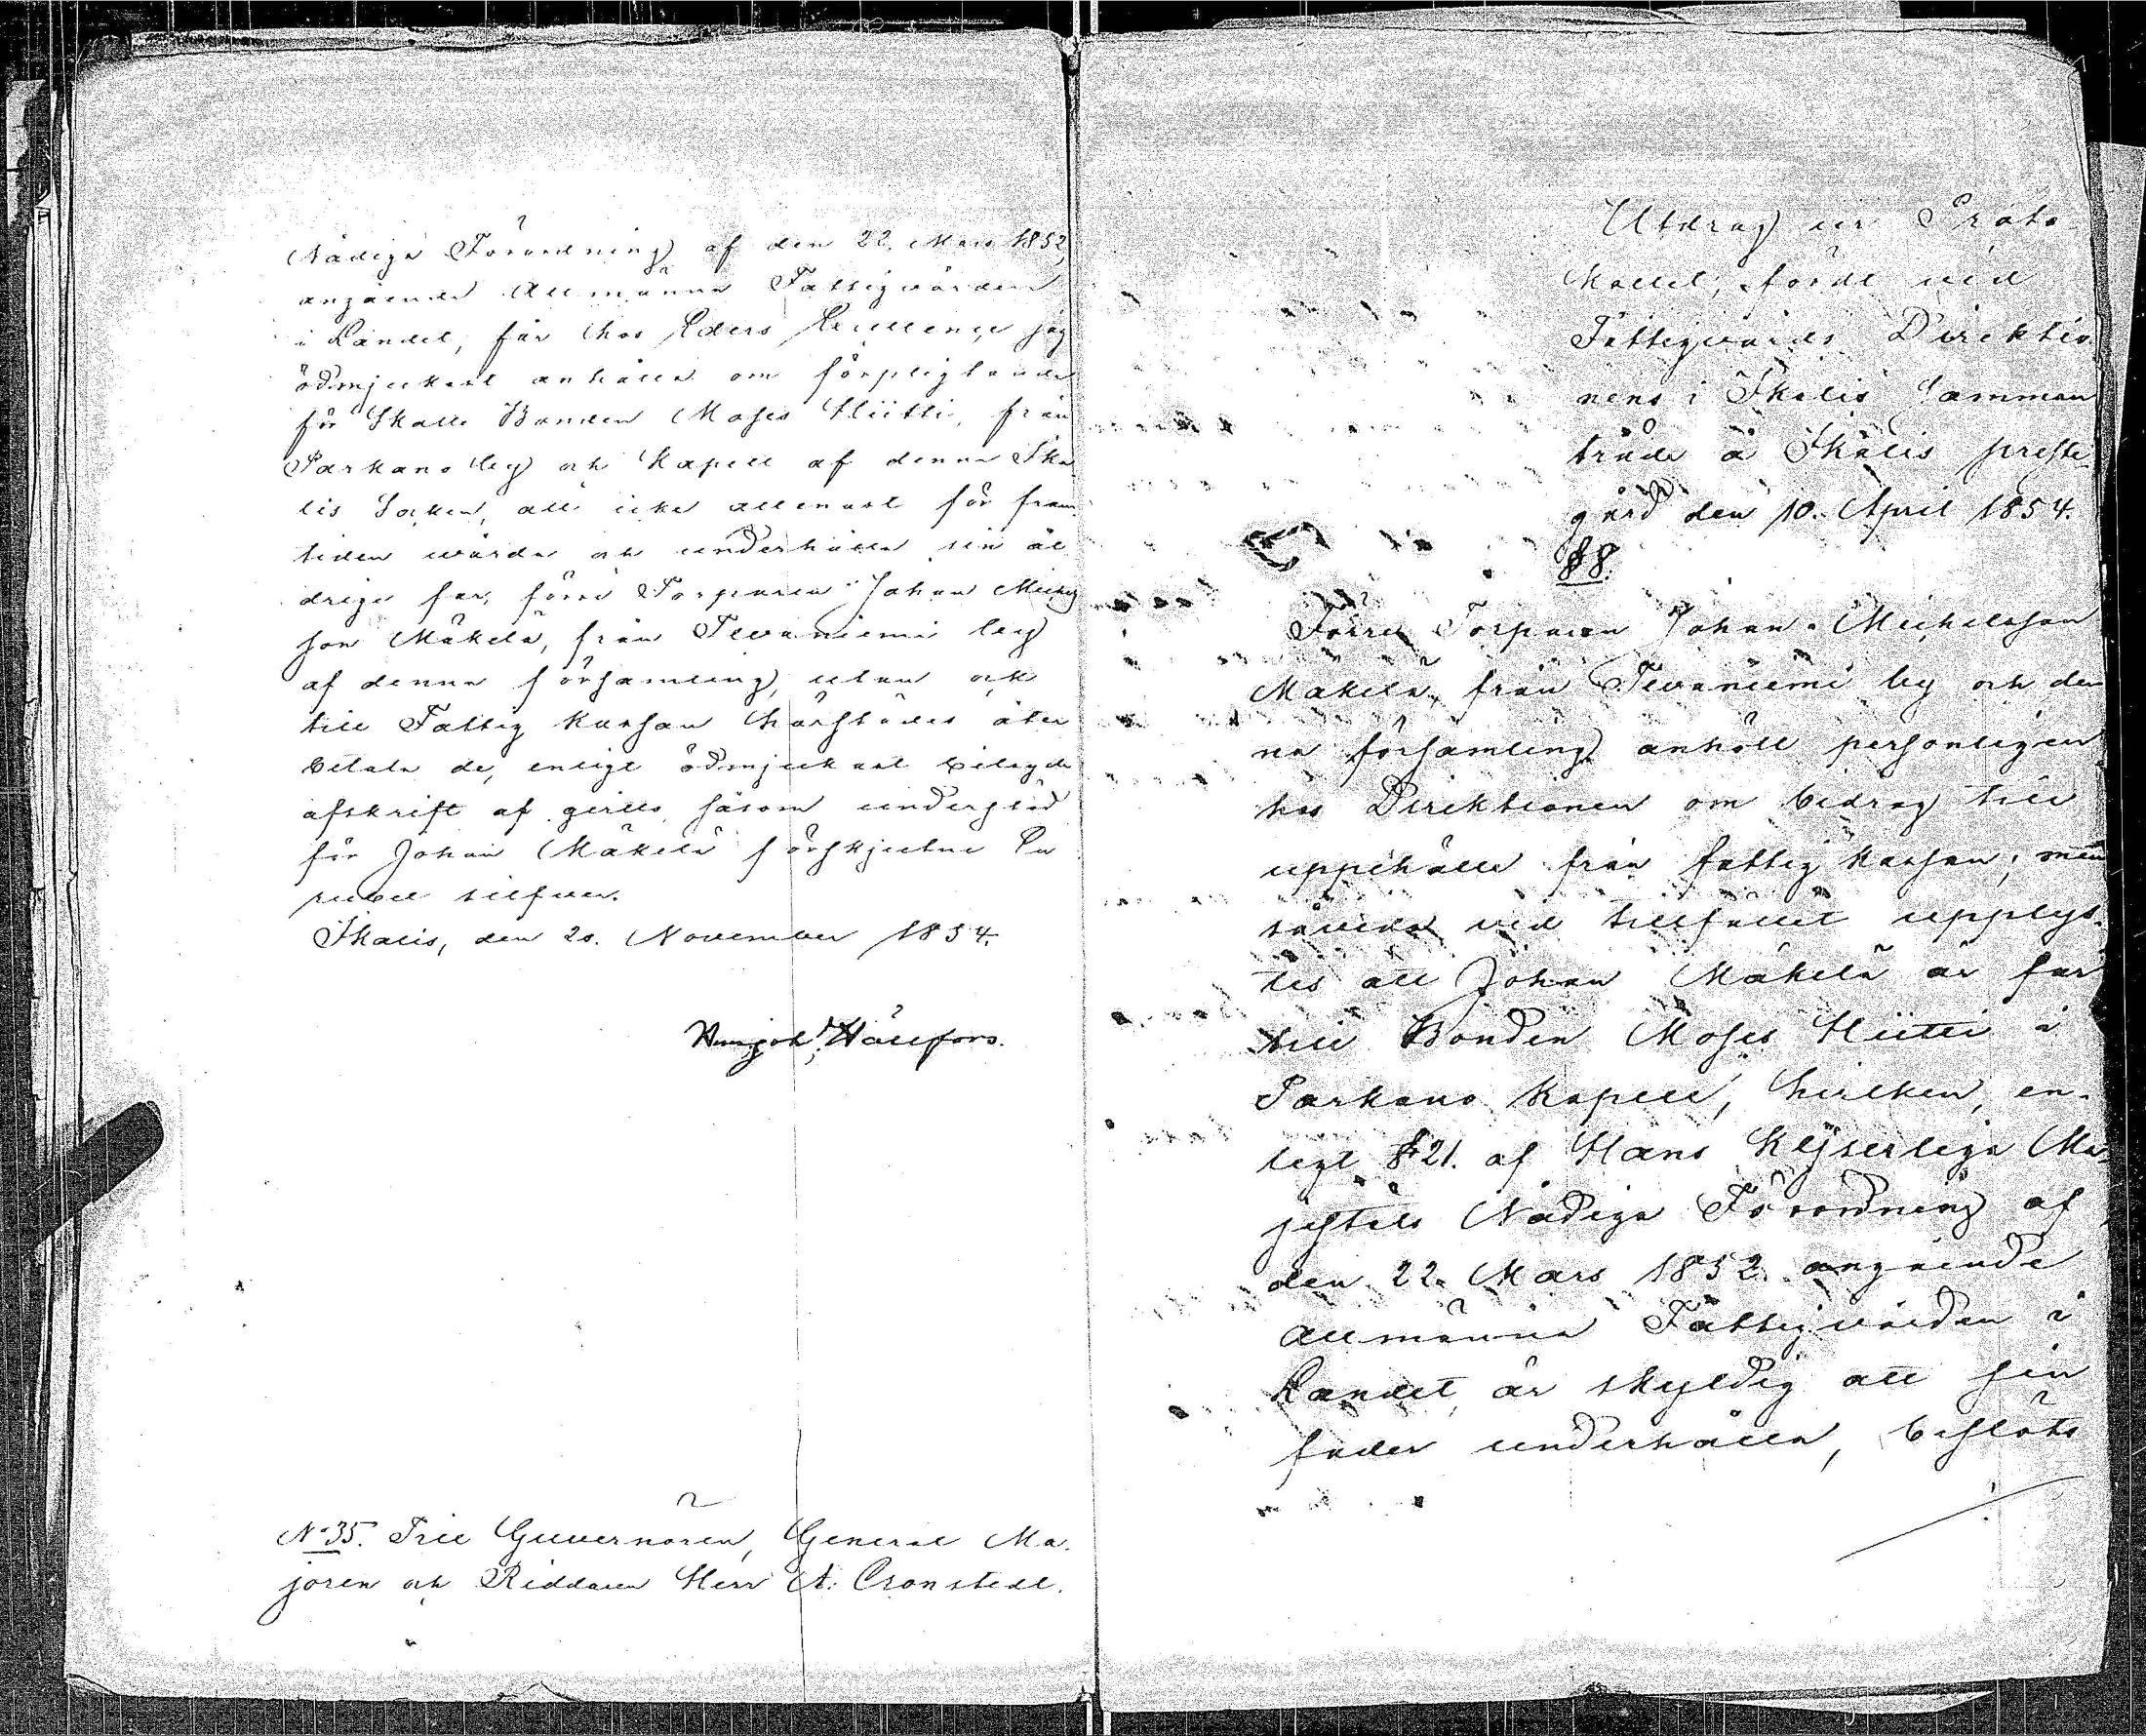 Nådiga Förordning af den 22. Mars 1852,
angående Allmänna Fattigvården
i Landet, får hos Eders Excellence jag
ödmjukast anhålla om förpligtande
för Skatte Bonden Moses Hiitti, från
Parkano by och Kapell af denna Ika
lis Socken, att icke allenast för fram
tiden wårda och underhålla sin ål
driga far, förre Torparen Johan Michels
son Mäkelä, från Tevaniemi by
af denna församling, utan ock
till Fattig kassan härstädes åter
betala de, enligt ödmjukast bilagde
afskrift af, såsom understöd
för Johan Mäkelä förskjutne En
rubel silfver.
Ikalis, den 20. November 1854.
Hällfors.
No 35. Till Guvernören, General Ma-
joren och Riddaren Herr A. Cronstedt.
Utdrag ur Proto-
kollet, fördt vid
Fattigvårds Direktio
nens i Ikalis samman
träde å Ikalis preste
gård den 10. April 1854.
§ 8.
Förre Torparen Johan Michelsson
Mäkelä, från Tevaniemi by och den
na församling anhöll personligen
hos Direktionen om bidrag till
uppehälle från fattig kassan; men
såvida vid tillfället upplys-
tes att Johan Mäkelä är far
till Bonden Moses Hiitti i
Parkano Kapell, hvilken, en-
ligt § 21. af Hans Kejserliga Ma-
jestäts Nådiga Förordning af
den 22. Mars 1852. angående
Allmänna Fattigvården i
Landet, är skyldig att sin
fader underhålla, beslöts